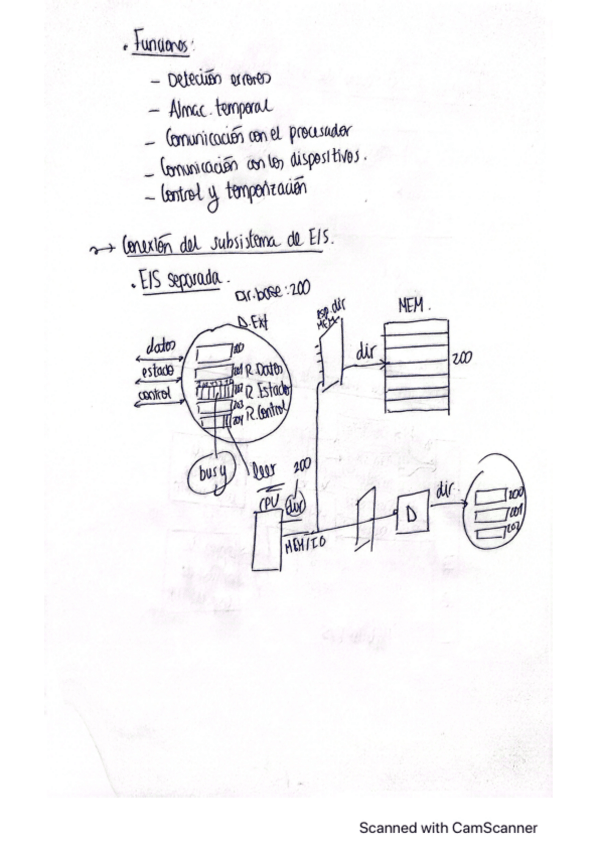 • Funciones:
– Detección errores
– Almac. temporal
– Comunicación con el procesador
– Comunicación con los dispositivos.
– Control y temporización
→ Conexión del subsistema de E/S.
• E/S separada.
Dir. base: 200
D. Ext
datos
estado
control
201 R. Datos
202 R. Estado
203 R. Control
204
busy
leer 200
CPU
dir
MEM/IO
esp. dir
MEM
dir
MEM.
200
D
dir.
200
201
202
Scanned with CamScanner